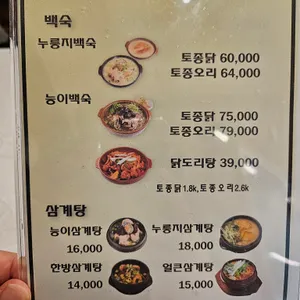 백숙
누룽지백숙
토종닭 60,000
토종오리 64,000
능이백숙
토종닭 75,000
토종오리 79,000
닭도리탕 39,000
토종닭1.8k,토종오리2.6k
삼계탕
능이삼계탕 누룽지삼계탕
16,000 18,000
한방삼계탕 얼큰삼계탕
14,000 15,000